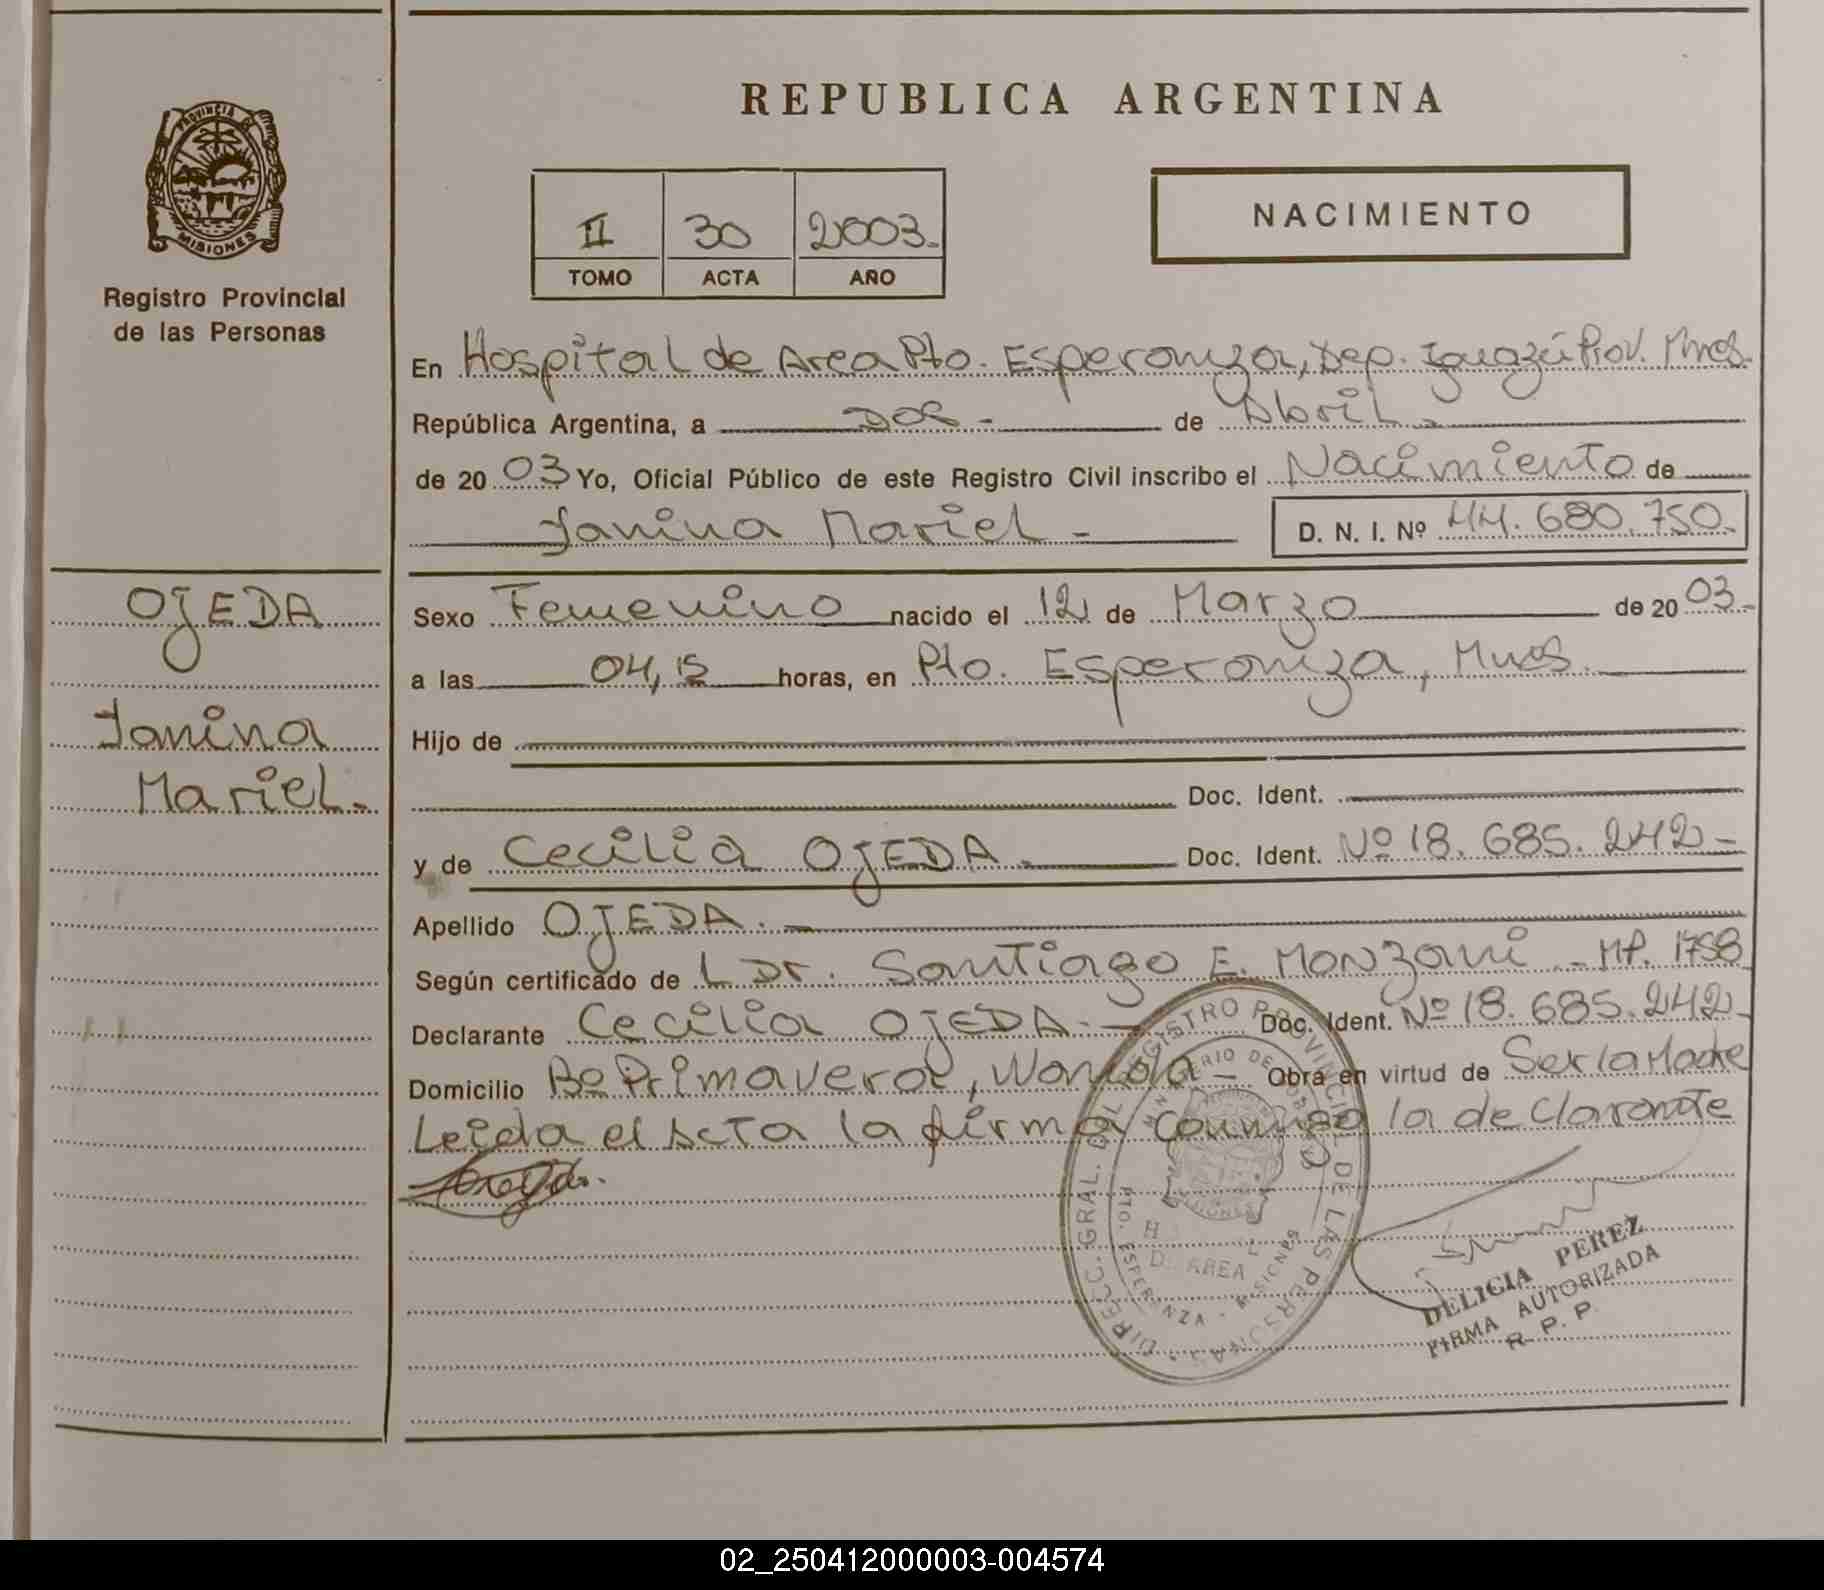 REPUBLICA ARGENTINA
PROVINCIA DE
MISIONES
Registro Provincial
de las Personas
II 30 2003.
TOMO ACTA AÑO
NACIMIENTO
En Hospital de Area Pto. Esperanza, Dep. Iguazú Prov. Mnes.
República Argentina, a Dos - de Abril.
de 20 03 Yo, Oficial Público de este Registro Civil inscribo el Nacimiento de
Janina Mariel - D. N. I. Nº 44.680.750.
OJEDA
Janina
Mariel.-
Sexo Femenino nacido el 12 de Marzo de 20 03.-
a las 04,15 horas, en Pto. Esperanza, Mnes.
Hijo de
Doc. Ident.
y de Cecilia OJEDA. Doc. Ident. Nº 18.685.242-
Apellido OJEDA. -
Según certificado de L Dr. Santiago E. Monzani - MP. 1758
Declarante Cecilia OJEDA. - Doc. Ident. Nº 18.685.242-
Domicilio Bº Primavera, Wanda - Obra en virtud de Ser la Madre
Leida el Acta la firma conmigo la declarante
DIRECC. GRAL. DEL REGISTRO PROVINCIAL DE LAS PERSONAS
PTO. ESPERANZA - MISIONES
AREA
DELICIA PEREZ
FIRMA AUTORIZADA
R. P. P.
02_250412000003-004574